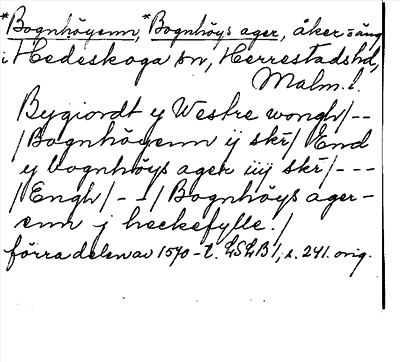 *Bognhöyenn, *Bognhöys ager, åker o äng
i Hedeskoga sn, Herrestads hd,
Malm. l.
Bygiordt y Westre wongh/--
/Bognhöyenn ÿ skr̄/ End
y bognhöys ager iiÿ skr̄/---
/Engh/--/Bognhöys ager-
enn j heckefylle./
förra delen av 1570-t. LSLB 1, s. 241. orig.